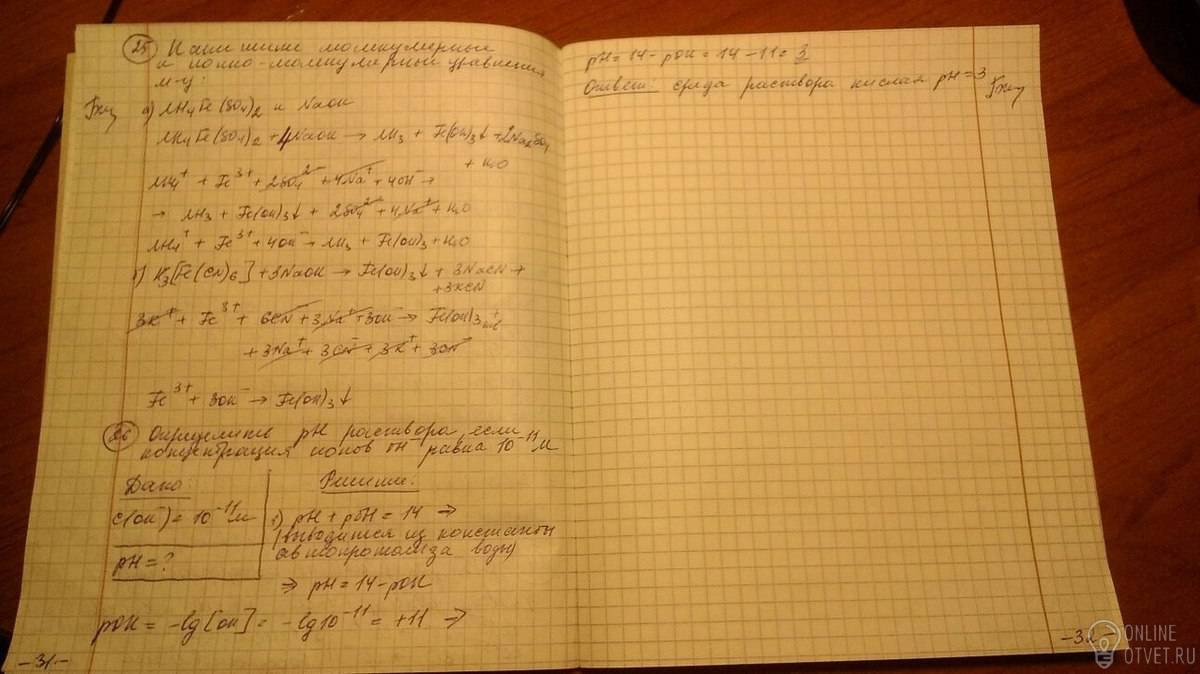 25 Напишите молекулярные
и ионно-молекулярные уравнения
м-у:
а) NH4Fe(SO4)2 и NaOH
NH4Fe(SO4)2 + 4NaOH → NH3 + Fe(OH)3↓ + 2Na2SO4
+ H2O
NH4⁺ + Fe³⁺ + 2SO4²⁻ + 4Na⁺ + 4OH⁻ →
→ NH3 + Fe(OH)3↓ + 2SO4²⁻ + 4Na⁺ + H2O
NH4⁺ + Fe³⁺ + 4OH⁻ → NH3 + Fe(OH)3 + H2O
б) K3[Fe(CN)6] + 3NaOH → Fe(OH)3↓ + 3NaCN +
+ 3KCN
3K⁺ + Fe³⁺ + 6CN⁻ + 3Na⁺ + 3OH⁻ → Fe(OH)3
+ 3Na⁺ + 3CN⁻ + 3K⁺ + 3CN⁻
Fe³⁺ + 3OH⁻ → Fe(OH)3↓
26 Определить pH раствора, если
концентрация ионов OH⁻ равна 10⁻¹¹ М
Дано:
C(OH⁻) = 10⁻¹¹ М
pH = ?
Решение:
1) pH + pOH = 14 ⇒
(выводится из константы
автопротолиза воды)
⇒ pH = 14 - pOH
pOH = -lg[OH] = -lg10⁻¹¹ = +11 ⇒
-31-
pH = 14 - pOH = 14 - 11 = 3
Ответ: среда раствора кислая pH = 3
-32-
ONLINE
OTVET.RU